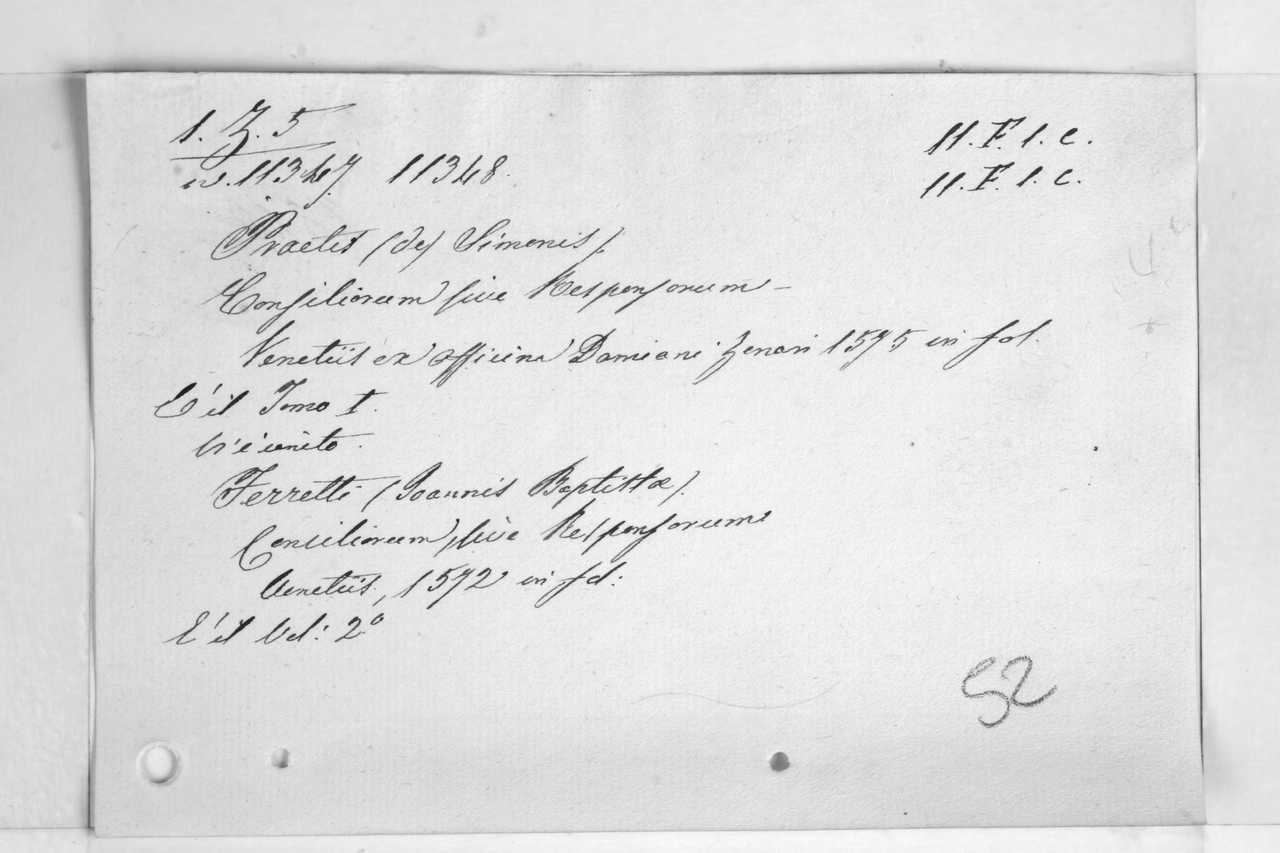 1. Z. 5
11.F.1.c.
in. 11347 11348.
11.F.1.c.
Praetis (de) Simonis).
Consiliorum sive Responsorum -
Venetiis ex officina Damiani Zenari 1575 in fol.
E' il Tomo I.
Vi è unito.
Ferretti (Joannis Baptistae).
Consiliorum, sive Responsorum
Venetiis, 1572 in fol:
E' il Vol: 2°
52